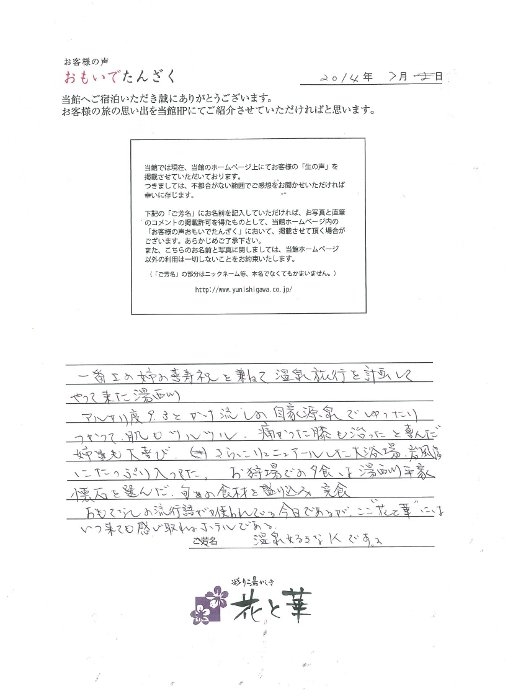 お客様の声
おもいでたんざく
2014年 7月 2日
当館へご宿泊いただき誠にありがとうございます。
お客様の旅の思い出を当館HPにてご紹介させていただければと思います。
当館では現在、当館のホームページ上にてお客様の「生の声」を
掲載させていただいております。
つきましては、不都合がない範囲でご感想をお聞かせいただければ
幸いに存じます。
下記の「ご芳名」にお名前を記入していただければ、お写真と直筆
のコメントの掲載許可を得たものとして、当館ホームページ内の
「お客様の声おもいでたんざく」において、掲載させて頂く場合が
ございます。あらかじめご了承下さい。
また、こちらのお名前と写真に関しましては、当館ホームページ
以外の利用は一切しないことをお約束いたします。
(「ご芳名」の部分はニックネーム等、本名でなくてもかまいません。)
http://www.yunishigawa.co.jp/
一番上の姉の喜寿祝を兼ねて温泉旅行を計画して
やって来た湯西川
アルカリ度9.3とかけ流しの自家源泉でゆったり
つかって、肌もツルツル、痛かった膝も治ったと喜んだ
姉達も大喜び さらにリニューアルした大浴場、岩風呂
にたっぷり入ってきた。お狩場での夕食は湯西川平家
懐石を選んだ。旬の食材を盛り込み完食
おもてなしの流行語が使われている今日であるが、ここ"花と華"には
いつ来ても感じ取れるホテルである。
ご芳名 温泉
花と華